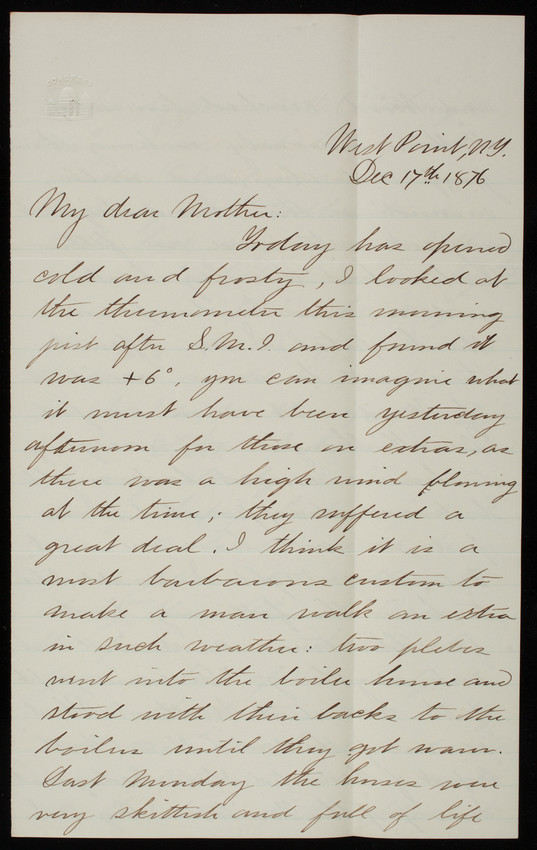 West Point, NY.
Dec 17th 1876
My dear Mother:
Today has opened
cold and frosty, I looked at
the thermometer this morning
just after S.M.I. and found it
was +6°, you can imagine what
it must have been yesterday
afternoon for those on extras, as
there was a high wind blowing
at the time; they suffered a
great deal. I think it is a
most barbarous custom to
make a man walk an extra
in such weather: two plebes
went into the boiler house and
stood with their backs to the
boilers until they got warm.
Last Monday the horses were
very skittish and full of life